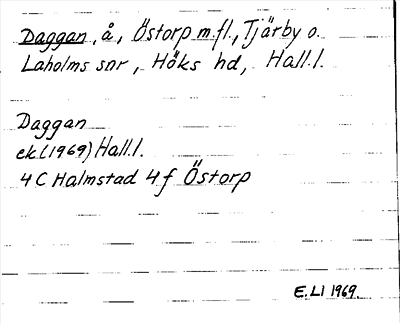 Daggan, å, Östorp m.fl., Tjärby o.
Laholms snr, Höks hd, Hall.l.
Daggan
ek (1969) Hall.l.
4 C Halmstad 4 f Östorp
E.LI 1969.